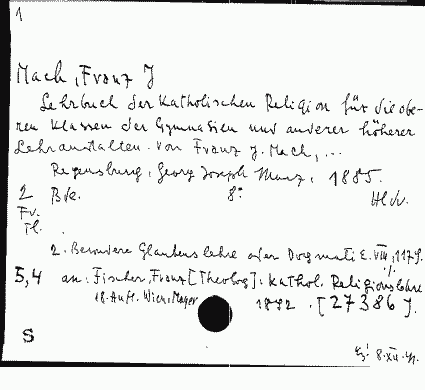 1
Mach, Franz J
Lehrbuch der Katholischen Religion für die obe-
ren Klassen der Gymnasien und anderer höherer
Lehranstalten. Von Franz J. Mach, ...
Regensburg, Georg Joseph Manz, 1885.
2 Bde. 8° Hldr.
Fr.
Tl.
2. Besondere Glaubenslehre oder Dogmatik. VIII, 117 S.
5,4 an: Fischer, Franz [Theolog]: Kathol. Religionslehre
18. Aufl. Wien, Mayer 1892. [27386].
S
8.XII.